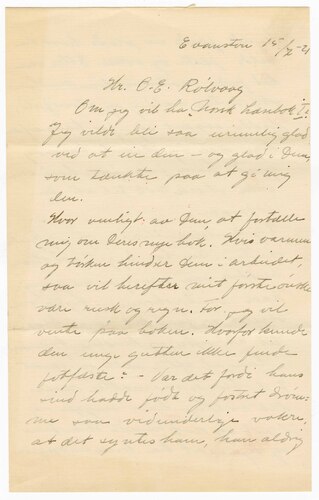 Evanston 15/2-21
Hr. O. E. Rölvaag
Om jeg vil ha Norsk haanbok I?
Jeg vilde bli saa urimelig glad
ved at den – og glad i Dem,
som tænkte paa at gi mig
den.
Hvor venligt av Dem, at fortælle
mig om Deres nye bok. Hvis varmen
og tørken hindrer Dem i arbeidet,
saa vil herefter mit første ønske
være mørk og regn. For jeg vil
vente paa boken. Hvorfor kunde
den unge gutten ikke finde
fotfæste? – Var det fordi hans
sind hadde født og fostret drøm-
me saa vidunderlige vakre,
at det syntes ham, han aldrig